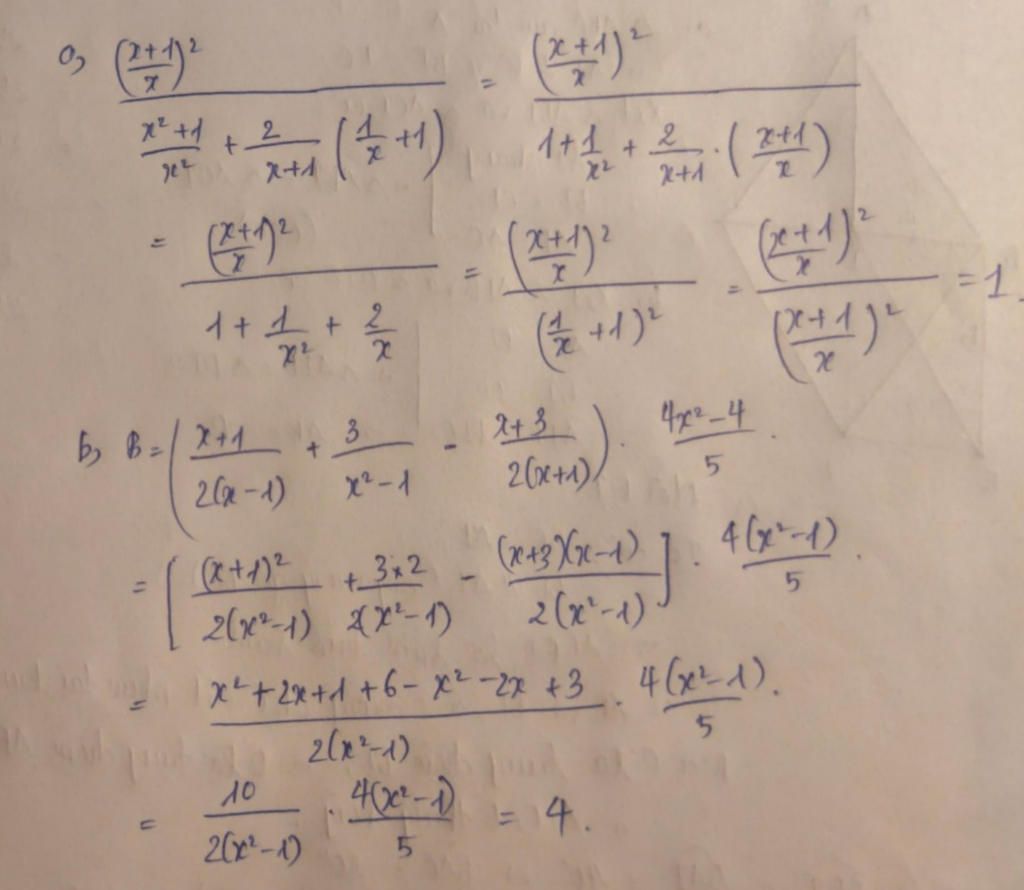 a, ((x+1)/x)² / ((x²+1)/x² + 2/(x+1) (1/x + 1)) = ((x+1)/x)² / (1 + 1/x² + 2/(x+1) . ((x+1)/x))
= ((x+1)/x)² / (1 + 1/x² + 2/x) = ((x+1)/x)² / (1/x + 1)² = ((x+1)/x)² / ((x+1)/x)² = 1.
b, B = ((x+1)/(2(x-1)) + 3/(x²-1) - (x+3)/(2(x+1))) . (4x²-4)/5 .
= [(x+1)²/(2(x²-1)) + (3×2)/(2(x²-1)) - ((x+3)(x-1))/(2(x²-1))] . (4(x²-1))/5 .
= (x²+2x+1+6-x²-2x+3)/(2(x²-1)) . (4(x²-1))/5 .
= 10/(2(x²-1)) . (4(x²-1))/5 = 4 .